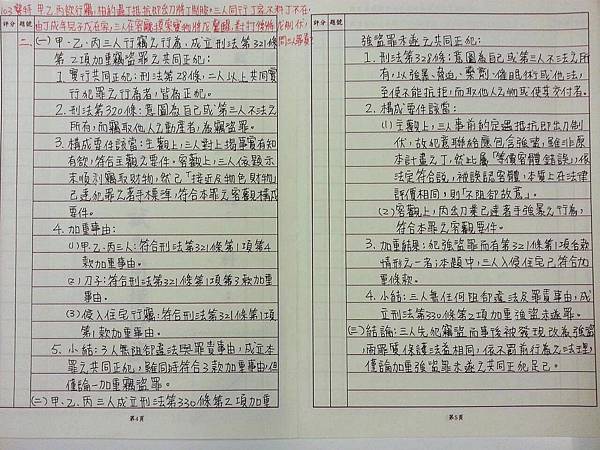 103警特 甲乙丙欲行竊,相約遇丁抵抗即亮刀將丁制服,三人同行丁家,不料丁不在,
由丁成年兒子戊在家,三人在客廳搜索實物將戊驚醒,
問三人罪責?
評分 題號
二、(一)甲、乙、丙三人行竊之行為,成立刑法第321條
第2項加重竊盜罪之共同正犯:
1. 實行共同正犯:刑法第28條,二人以上共同實
行犯罪之行為者,皆為正犯。
2. 刑法第320條:意圖為自己或第三人不法之
所有,而竊取他人之動產者,為竊盜罪。
3. 構成要件該當:主觀上,三人對上揭事實有知
有欲,符合主觀之要件。客觀上,三人依題示
未順利竊取財物,然已「接近及物色財物」
已達犯罪之著手標準,符合本罪之客觀構成
要件。
4. 加重事由:
(1)甲、乙、丙三人:符合刑法第321條第1項第4
款加重事由。
(2)刀子:符合刑法第321條第1項第3款加重
事由。
(3)侵入住宅行竊:符合刑法第321條第1項
第1款加重事由。
5. 小結:3人無阻卻違法與罪責事由,成立本
罪之共同正犯,雖同時符合3款加重事由,但
僅論一加重竊盜罪。
(二)甲、乙、丙三人成立刑法第330條第2項加重
第4頁
評分 題號
強盜罪未遂之共同正犯:
1. 刑法第328條:意圖為自己或第三人不法之所
有,以強暴、脅迫、藥劑、催眠術或他法,
至使不能抗拒,而取他人之物或使其交付者。
2. 構成要件該當:
(1)主觀上,三人事前約定遇抵抗即出刀制
伏,故犯意聯絡應包含強盜,雖非原
本計畫之丁,然此屬「等價客體錯誤」,依
法定符合說,被誤認客體,本質上在法律
評價相同,則「不阻卻故意」。
(2)客觀上,丙出刀業已達著手強暴之行為,
符合本罪之客觀要件。
3. 加重結果:犯強盜罪而有第321條第1項各款
情形之一者;本題中,三人入侵住宅已符合加
重條款。
4. 小結:三人無任何阻卻違法及罪責事由,成
立刑法第330條第2項加重強盜未遂罪。
(三)結論:三人先犯竊盜而事後被發現改為強盜,
兩罪質保護法益相同,依不罰前行為之法理,
僅論加重強盜罪未遂之共同正犯足已。
第5頁